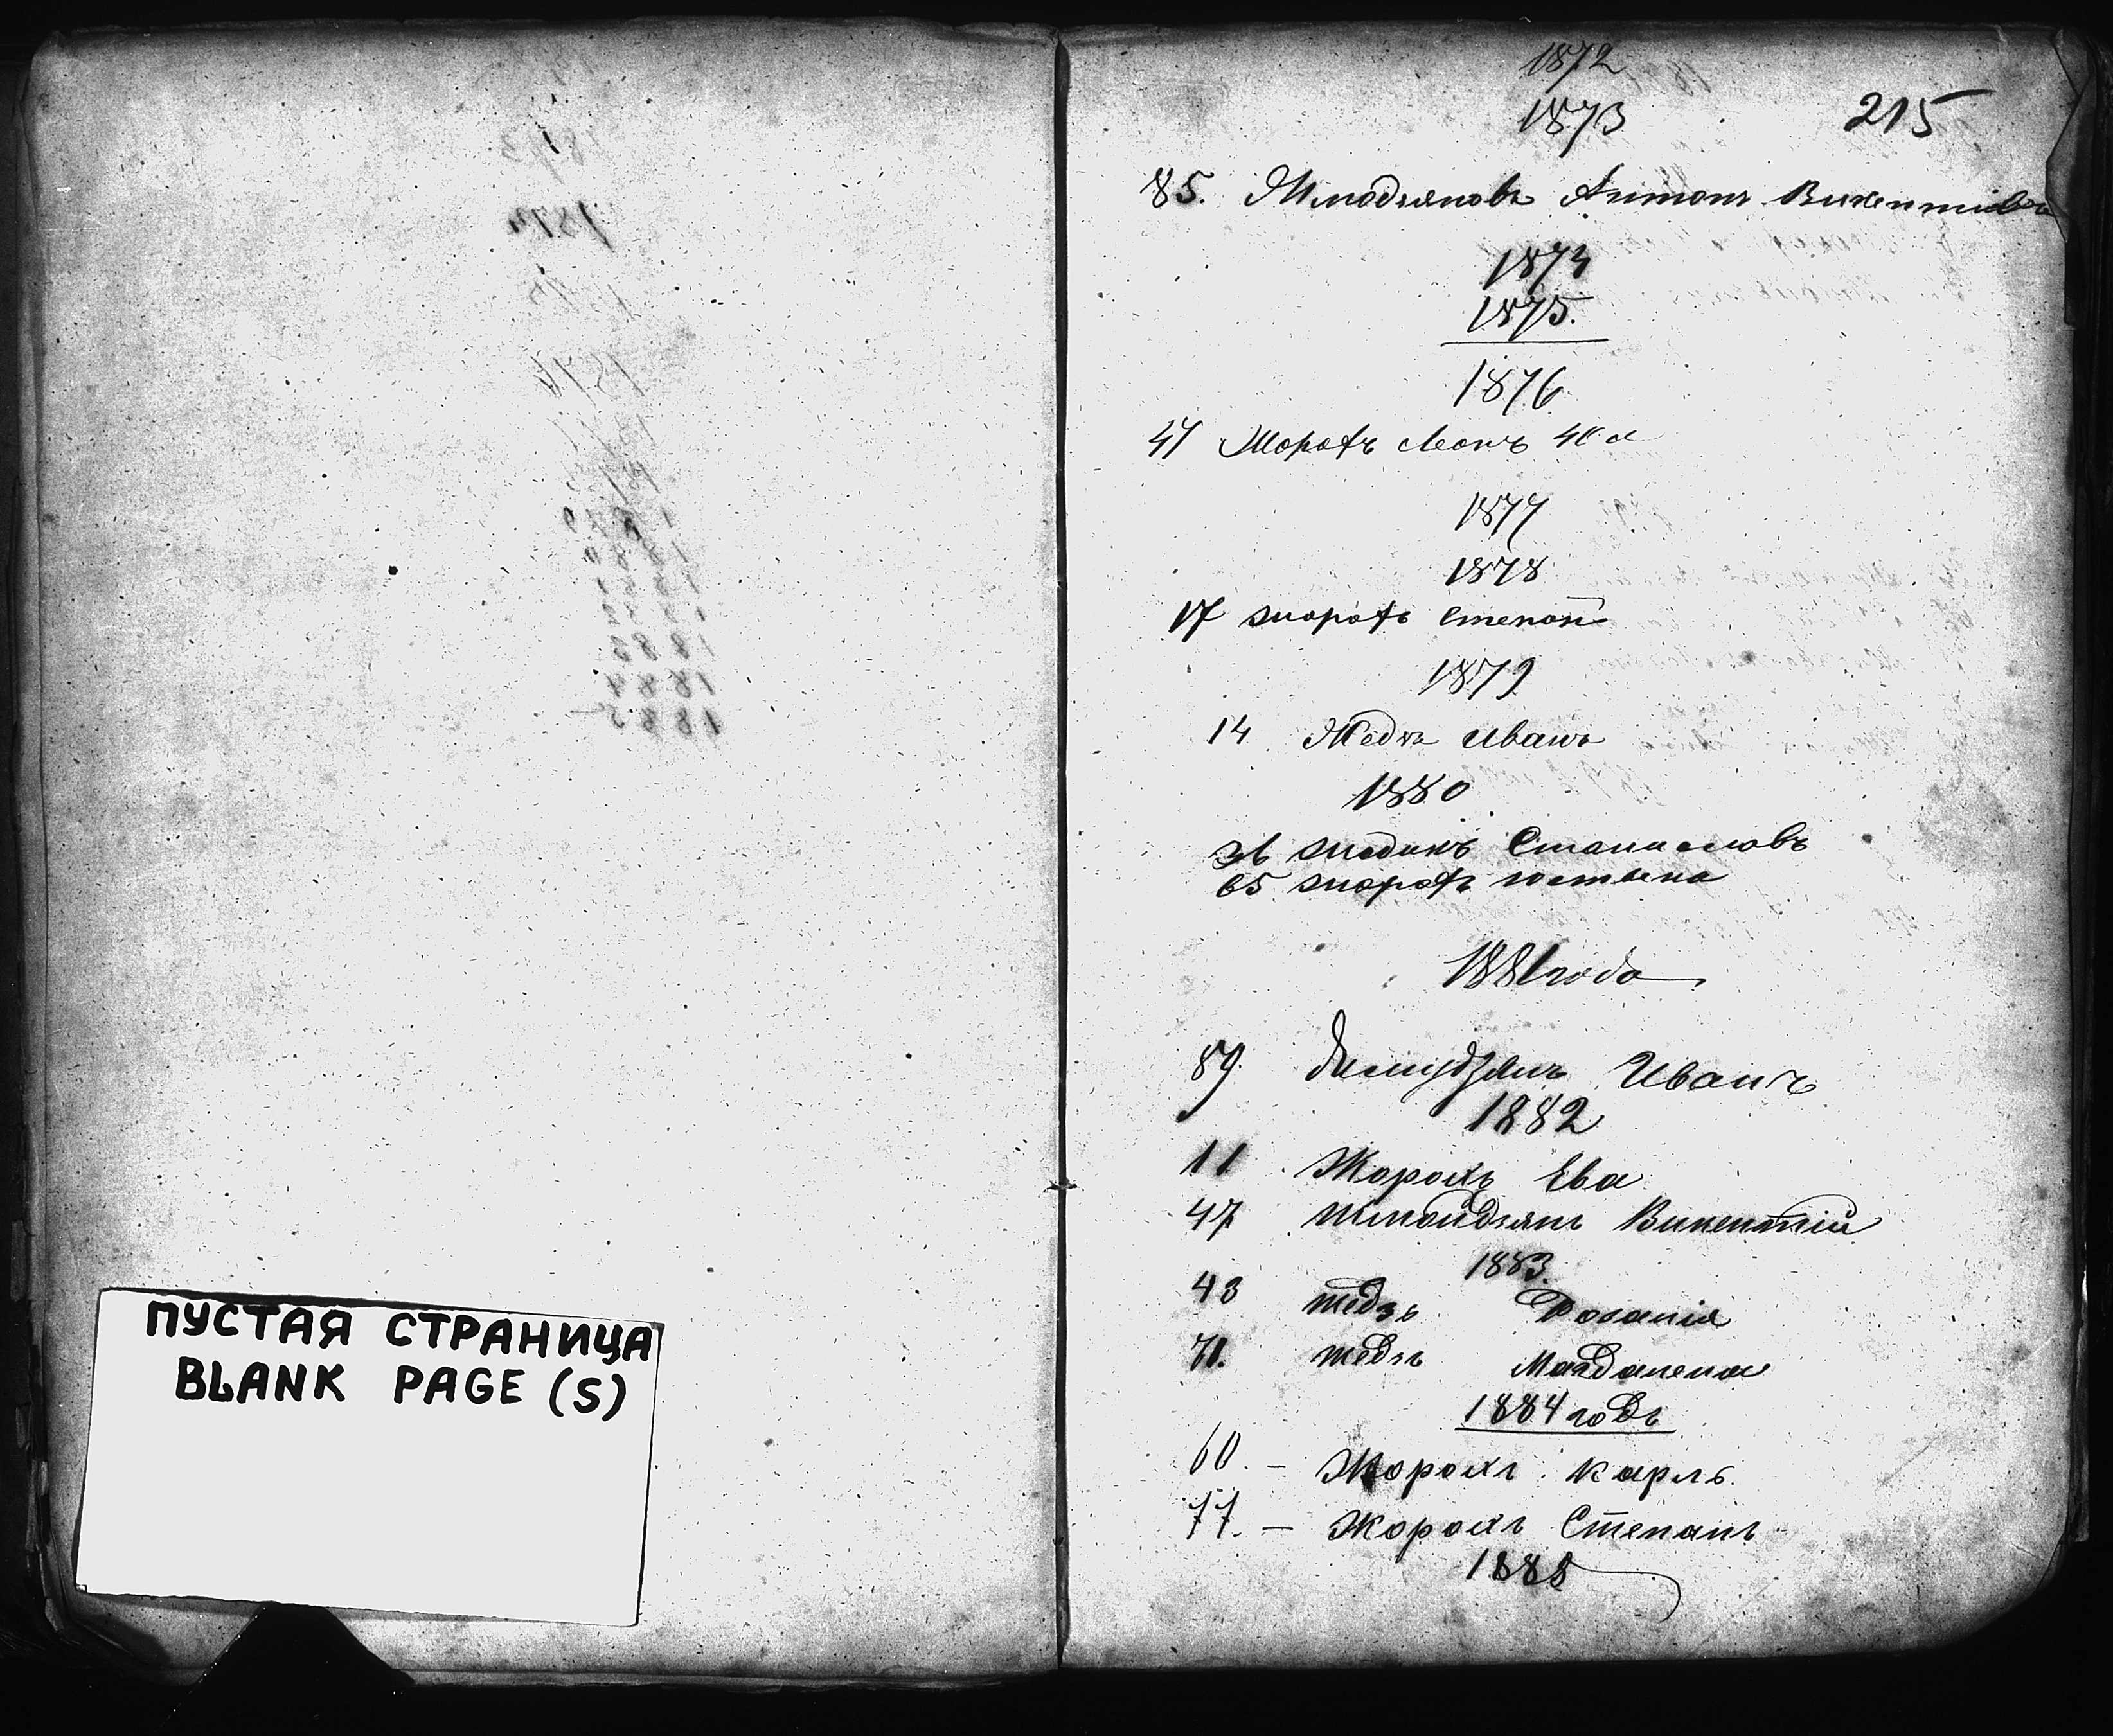 ПУСТАЯ СТРАНИЦА
BLANK PAGE (S)
1872
1873
215
85. Антонъ Викентіевъ
1874
1875.
1876
47 Жорохъ Леонъ
1877
1878
17 Жорохъ Степан
1879
14 Жедзь Иванъ
1880
36 Станиславъ
65 Жорохъ Юстына
1881 года
89. Иванъ
1882
11 Жорохъ Ева
47 Жмойдзянъ Викентій
1883.
43 Жедзь Розалія
71. Жедзь Магдалена
1884 годъ
60. – Жорохъ Карлъ.
77. – Жорохъ Степанъ
1885